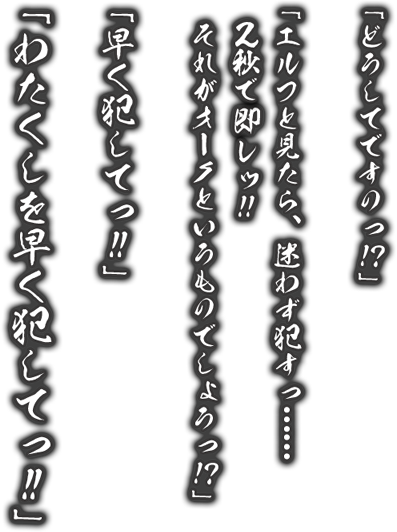 「どうしてですのっ!?」
「エルフと見たら、迷わず犯すっ……
2秒で即レッ!!
それがオークというものでしょうっ!?」
「早く犯してっ!!」
「わたくしを早く犯してっ!!」